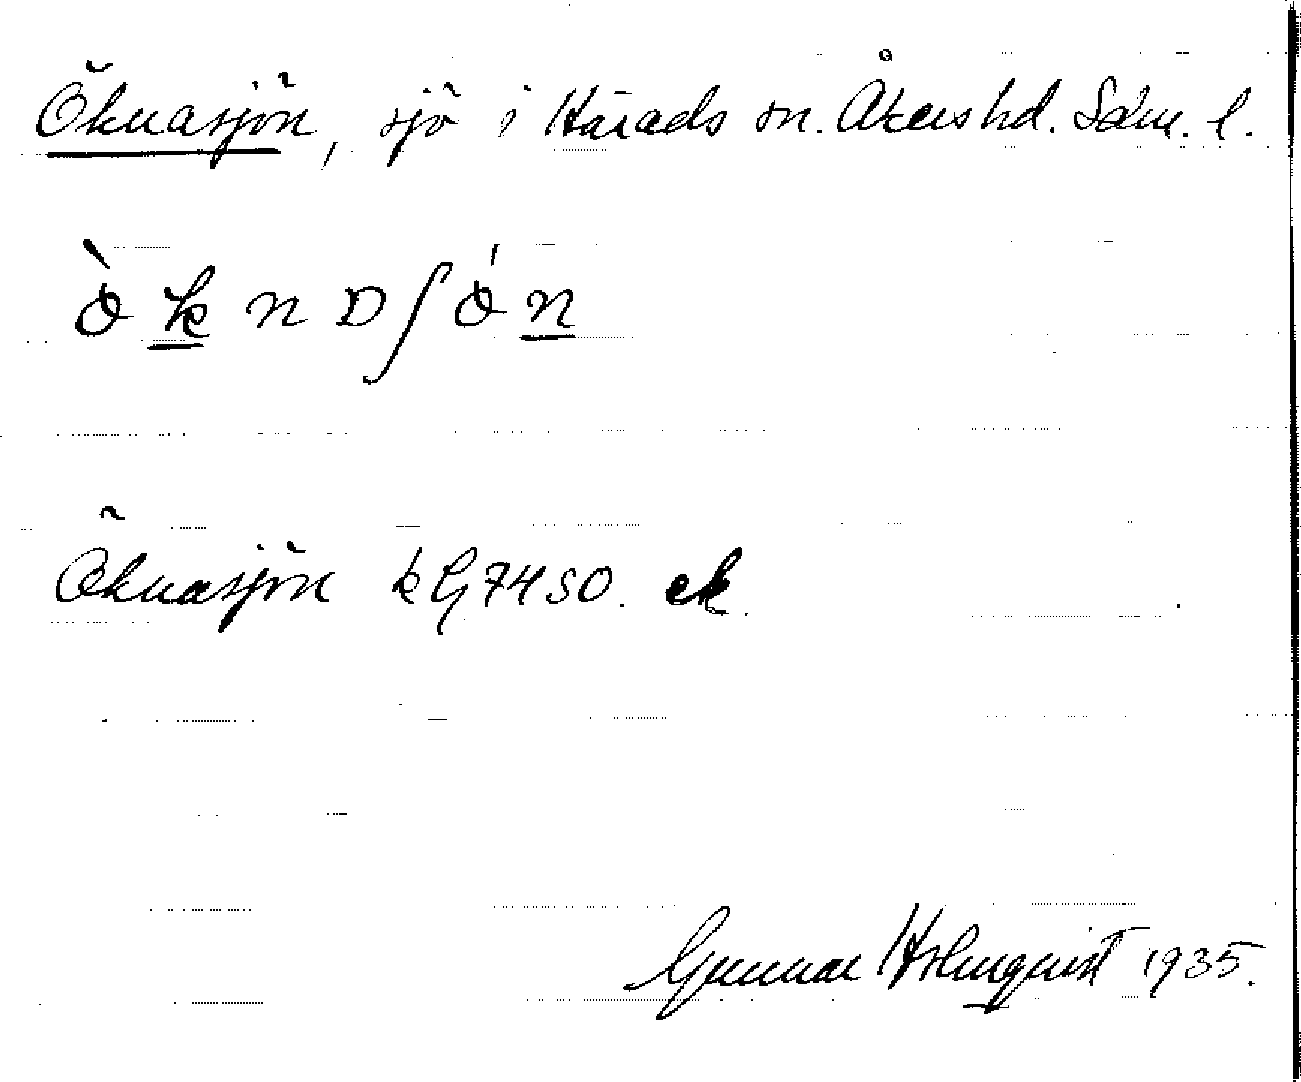 Öknasjön, sjö i Härads sn. Åkers hd. Södm. l.
Öknasjön kG7450. ek.
Gunnar Holmqvist 1935.